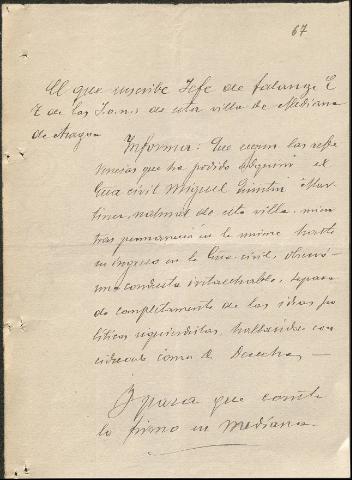 67
El que suscribe Jefe de falange E
y de las J.o.n.s de esta villa de Mediana
de Aragon
Informa: Que segun las refe
rencias que ha podido adquirir el
Gua civil Miguel Mar-
tinez, natural de esta villa, mien
tras permaneció en la misma hasta
su ingreso en la Gua civil, observó
una conducta intachable, separa
do completamente de las ideas po
liticas izquierdistas, hallandose con
ciderado como de Derechas,
Y para que conste
lo firmo en Mediana